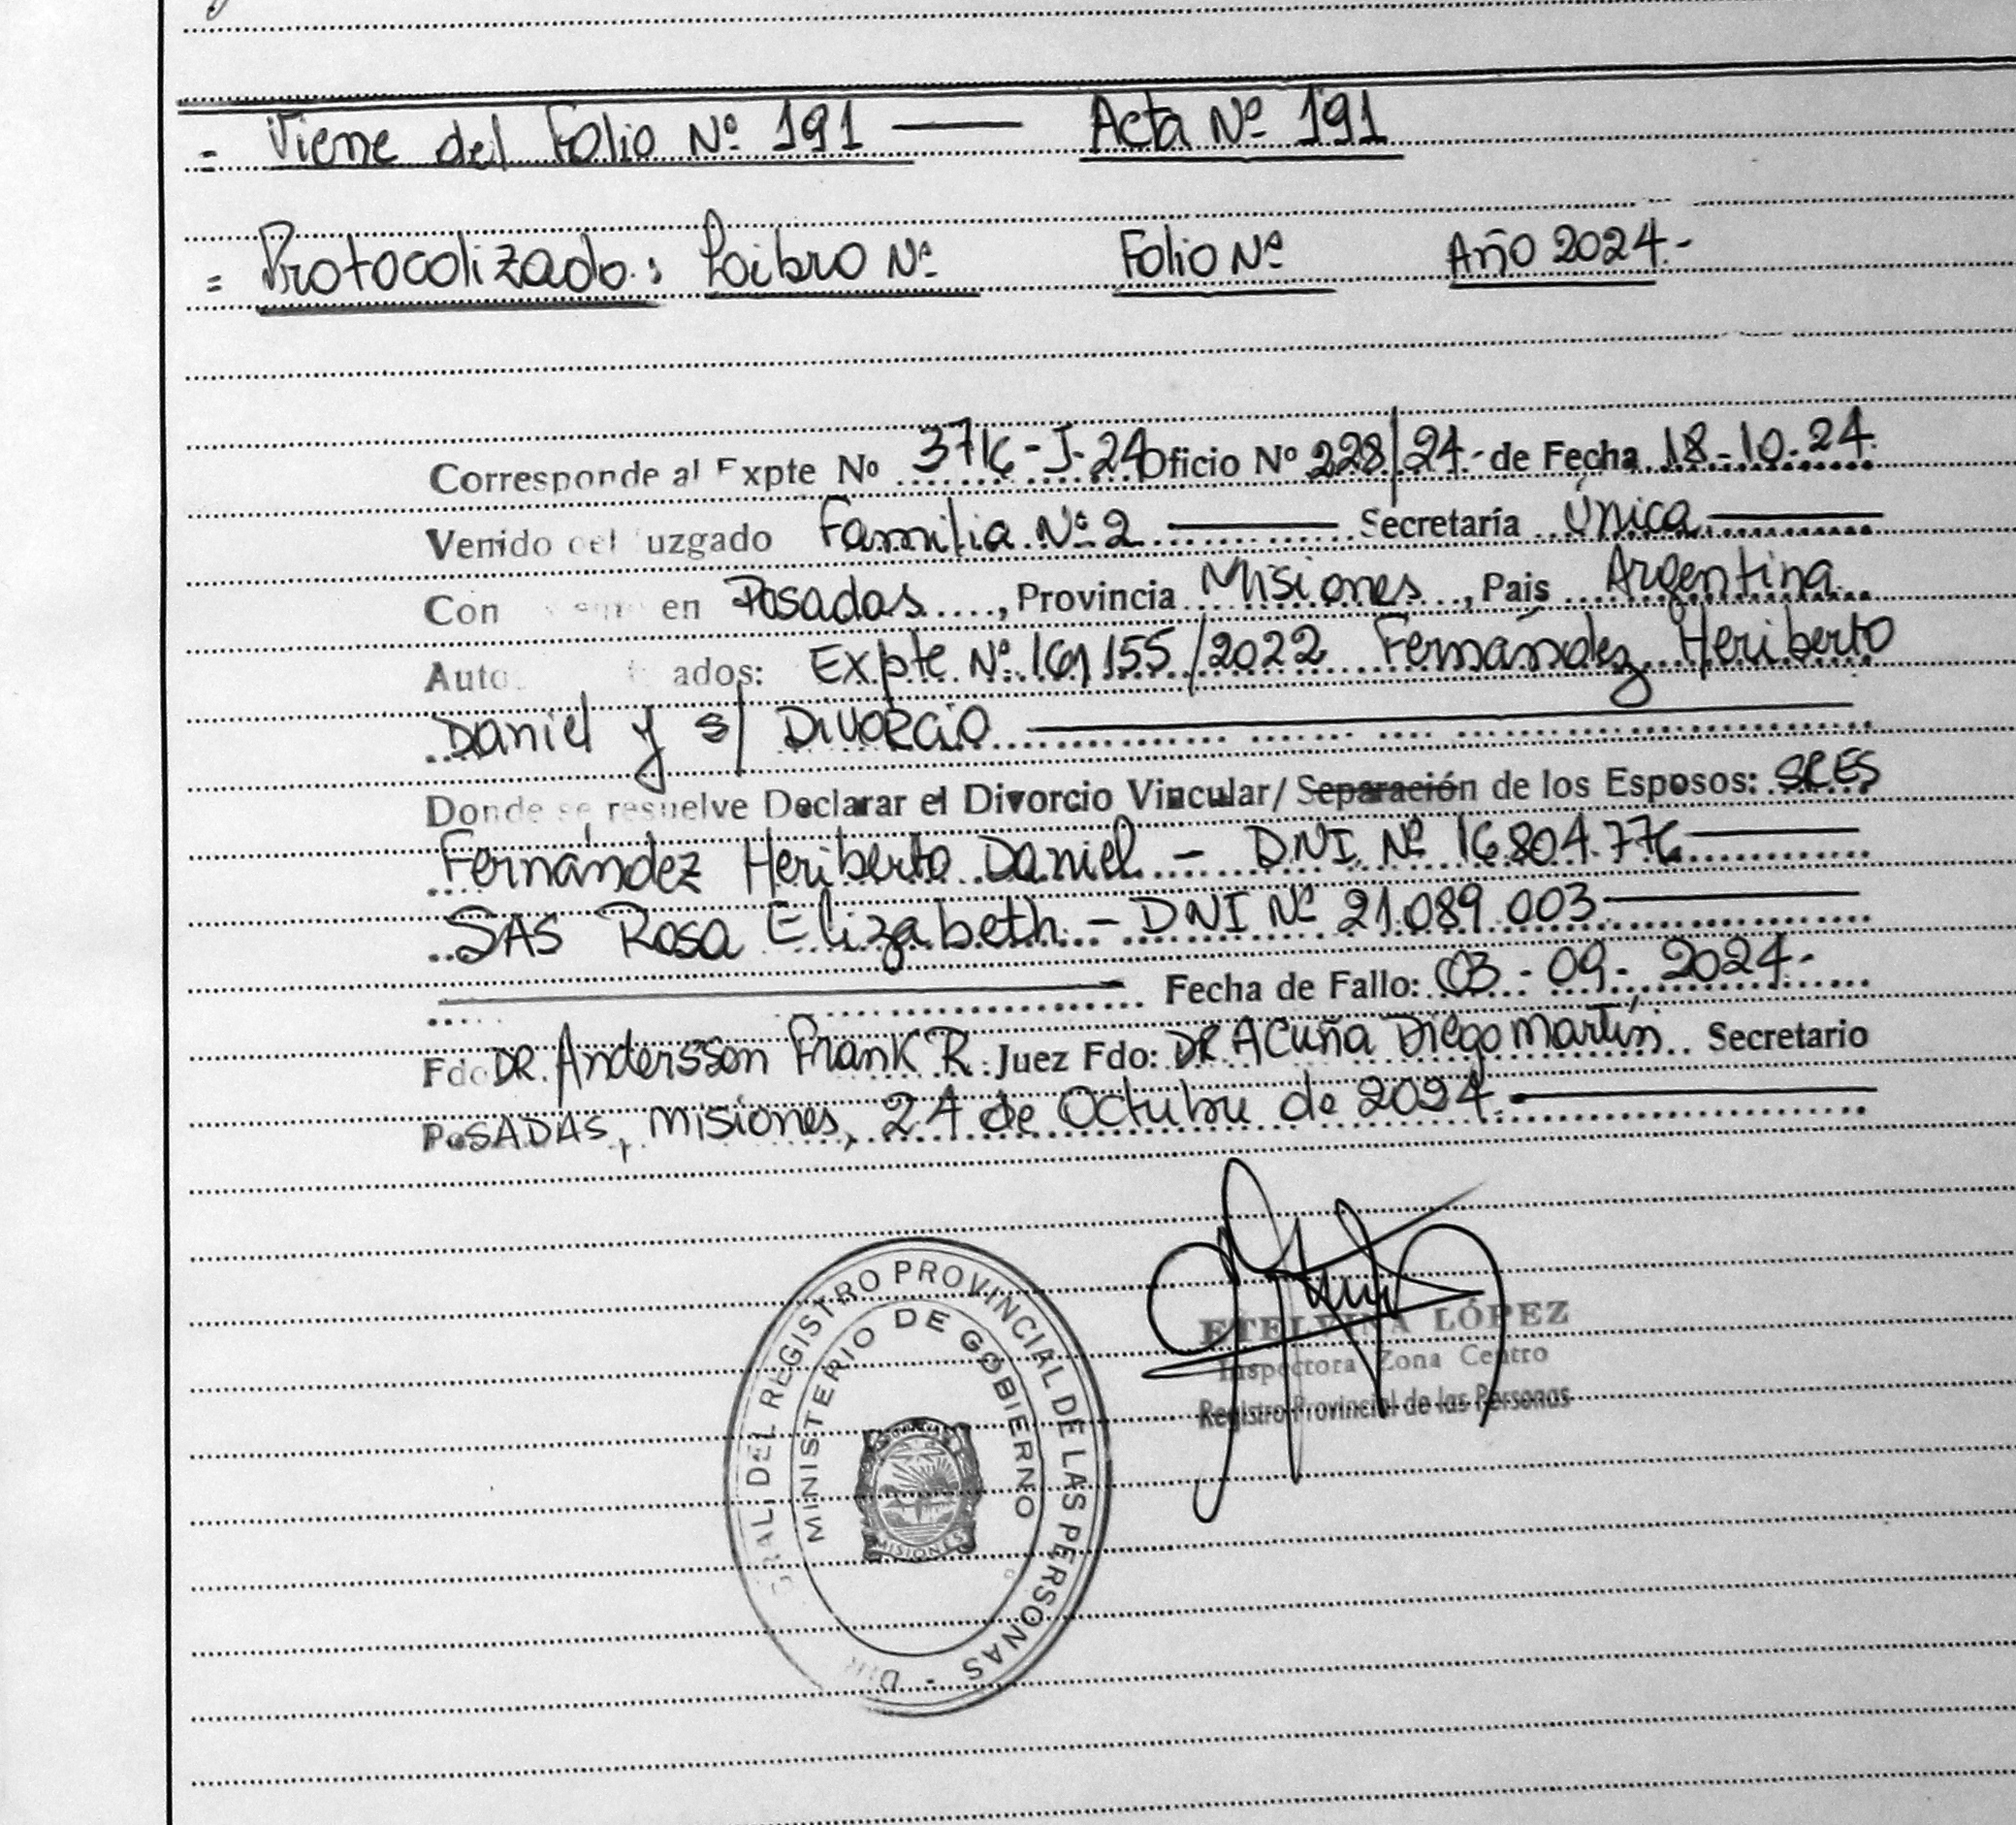 = Viene del Folio Nº 191 —— Acta Nº 191
= Protocolizado: Libro Nº Folio Nº Año 2024.-
Corresponde al Expte Nº 3716-J-24 Oficio Nº 228/24.- de Fecha 18-10-24.
Venido del Juzgado Familia Nº 2 —— Secretaría Única ——
Con en Posadas, Provincia Misiones, País Argentina
Auto ados: Expte Nº 161155/2022 Fernández Heriberto
Daniel y s/ Divorcio ——
Donde se resuelve Declarar el Divorcio Vincular/Separación de los Esposos: SRES
Fernández Heriberto Daniel - DNI Nº 16.804.776 ——
SAS Rosa Elizabeth - DNI Nº 21.089.003 ——
—— Fecha de Fallo: 03-09-2024.-
Fdo DR. Andersson Frank R. Juez Fdo: DR Acuña Diego Martín Secretario
POSADAS, Misiones, 24 de Octubre de 2024.- ——
ETELVINA LÓPEZ
Inspectora Zona Centro
Registro Provincial de las Personas
GRAL. DEL REGISTRO PROVINCIAL DE LAS PERSONAS - DIR
MINISTERIO DE GOBIERNO
MISIONES